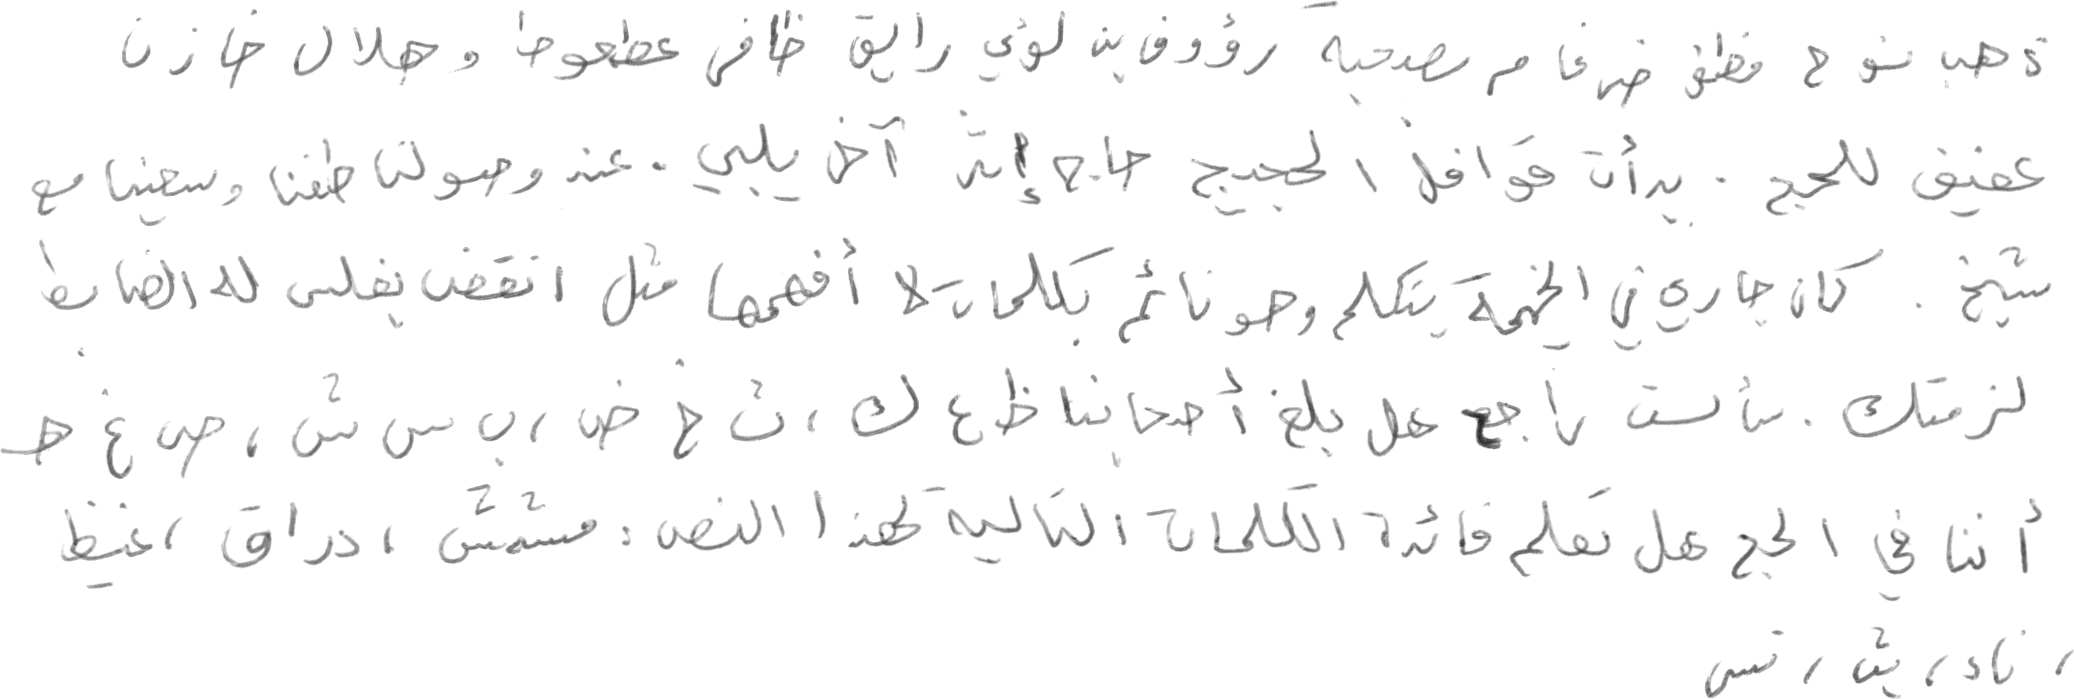 ذهب نوح مظفر ضرغام بصحبة رؤوف بن لؤي رايق ظافر عطعوط و هلال خازن
عفيف للحج . بدأت قوافل الحجيج حاج إثر آخر يلبي . عند وصولنا طفنا وسعينا مع
شيخ . كان جاري في الخيمة يتكلم وهو نائم بكلمات لا أفهمها مثل انقض بفلس له الضابط
لزمتك . سألت راجع هل بلغ أصحابنا ظ ع ك ، ث خ ض ، ب س ش ، ص غ ه
أننا في الحج هل تعلم فائدة الكلمات التالية لهذا النص : مشمش ، دراق ، غيظ
، ناد ، يث ، تس